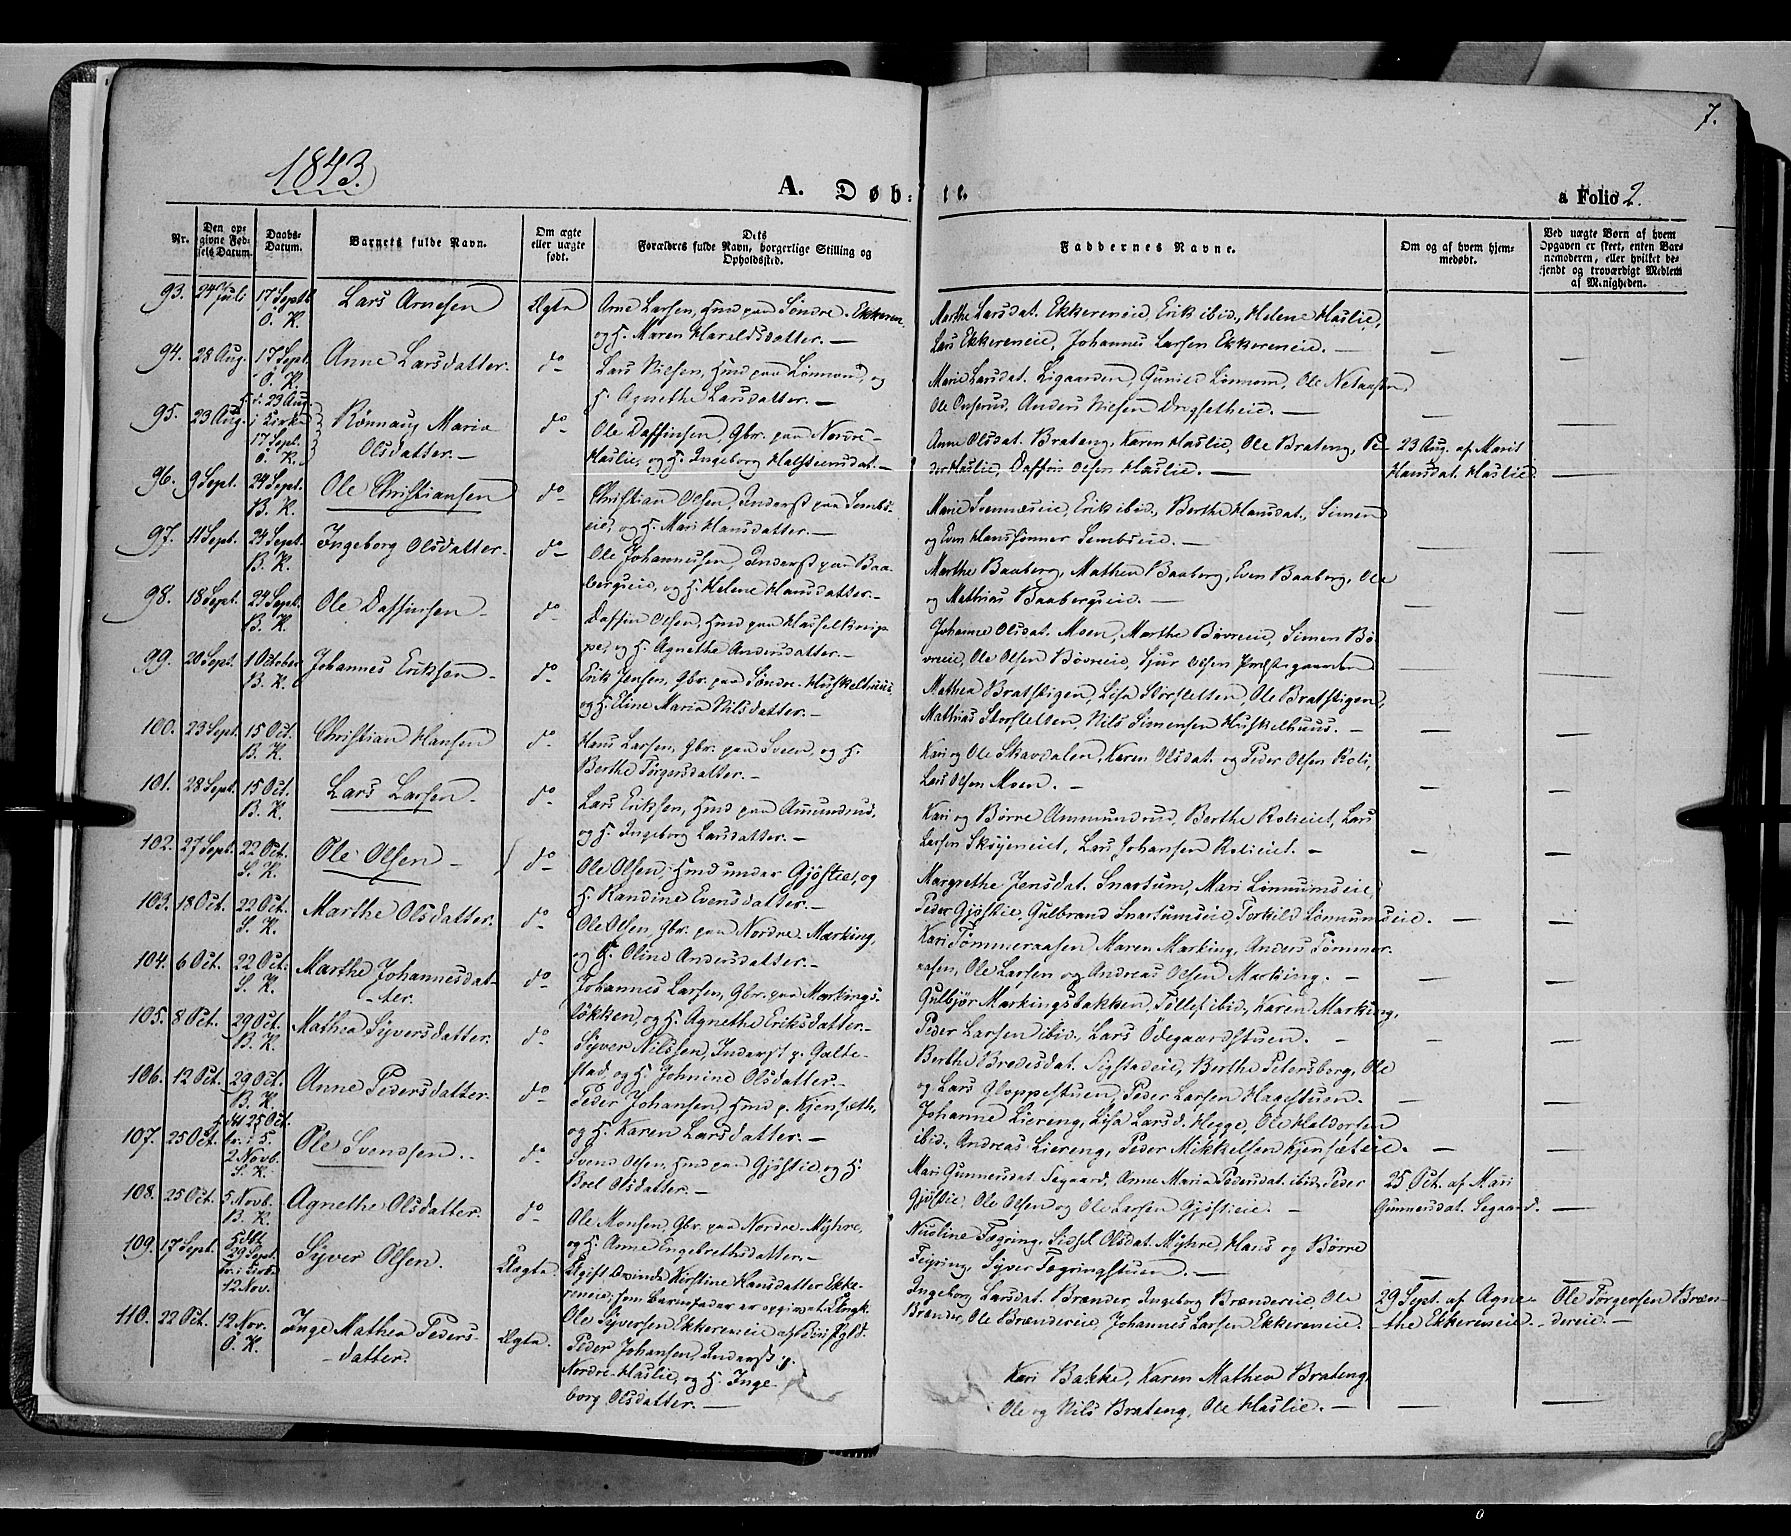 7.
1843.
A. Døb- te.
a Folio 2.
Nr.
Den op-
givne Fød-
sels Datum.
Daabs-
Datum.
Barnets fulde Navn.
Om ægte
eller uægte
født.
Dets
Forældres fulde Navn, borgerlige Stilling og
Opholdssted.
Faddernes Navne.
Om og af hvem hjem-
medøbt.
Ved uægte Born af hvem
Opgaven er skeet, enten Bar-
nemoderen, eller hvilket be-
kjendt og troværdigt Medlem
af Menigheden.
93. 24 Juli 17 Septb. O. K. Lars Arnesen Ægte
Arne Larsen, Hmd paa Søndre-Ekkeren,
og H. Maren Haraldsdatter. —
Marthe Larsdat. Ekkereneie, Erik ibid., Helene Haslie,
Lars Ekkereneie, Johannes Larsen Ekkereneie. —
94. 28 Aug. 17 Sept. O. K. Anne Larsdatter. do
Lars Nilsen, Hmd paa Lønnum, og
H. Agnethe Larsdatter. —
Marie Larsdat. Ligaarden, Gunild Lønnom, Ole Netaasen,
Ole Onsrud, Anders Nilsen
95. 23 Aug. H. d. 23 Aug. i Kirke 17 Sept. O. K. Rønnaug Maria
Olsdatter. — do
Ole Daffinsen, Gbr. paa Nordre-
Haslie, og H. Ingeborg Halsteensdat. —
Anne Olsdat. Brateng, Karen Haslie, Ole Brateng, Pe-
der Haslie, Daffin Olsen Haslie. —
23 Aug. af Marit
Hansdat. Haslie.
96. 9 Sept. 24 Sept. B. K. Ole Christiansen do
Christian Olsen, Inderst paa Sembs-
eie, og H. Mari Hansdatter. —
Marie Erik ibid., Berthe Hansdat., Simen
og Even Hanssønner Sembseie. —
97. 11 Sept. 24 Sept. B. K. Ingeborg Olsdatter. do
Ole Johannessen, Inderst paa Baa-
bergseie, og H. Helene Hansdatter. —
Marthe Baaberg, Mathea Baaberg, Even Baaberg, Ole
og Mathias Baabergseie. —
98. 18 Sept. 24 Sept. B. K. Ole Daffinsen — do
Daffin Olsen, Hmd paa
og H. Agnethe Andersdatter. —
Johanne Olsdat. Moen, Marthe Bøvreeie, Simen Bø-
vreeie, Ole Olsen Bøvreeie, Sjur Olsen Præstegaarden
99. 20 Sept. 1 October B. K. Johannes Eriksen — do
Erik Jensen, Gbr. paa Søndre-Huskelhuus,
og H. Eline Maria Nilsdatter. —
Mathea Bratstigen, Lisa Storsletten, Ole Bratstigen,
Mathias Storsletten, Nils Simensen Huskelhuus. —
100. 23 Sept. 15 Oct. B. K. Christian Hansen do
Hans Larsen, Gbr. paa Sveen, og H.
Berthe Torgersdatter. —
Kari og Ole Skavdalen, Karen Olsdat. og Peder Olsen Roli,
Lars Olsen Moen. —
101. 28 Sept. 15 Oct. B. K. Lars Larsen. do
Lars Eriksen, Hmd paa Amundrud,
og H. Ingeborg Larsdatter. —
Kari og Børre Ammundrud, Berthe Rolieiet, Lars
Larsen Skøyeneiet, Lars Johansen Rolieiet. —
102. 27 Sept. 22 Oct. S. K. Ole Olsen — do
Ole Olsen, Hmd under Gjøstie, og
H. Randine Evensdatter. —
Margrethe Jensdat. Snartum, Mari Lønnumseie,
Peder Gjøstie, Gulbrand Snartumseie, Torkild Lønnumseie.
103. 18 Oct. 22 Oct. S. K. Marthe Olsdatter. do
Ole Olsen, Gbr. paa Nordre-Marking,
og H. Oline Andersdatter. —
Kari Tømmeraasen, Maren Marking, Anders Tømmer-
aasen, Ole Larsen og Andreas Olsen Marking. —
104. 6 Oct. 22 Oct. S. K. Marthe Johannesdat-
ter. do
Johannes Larsen, Gbr. paa Markings-
løkken, og H. Agnethe Eriksdatter. —
Gulbjør Markingsbakken, Tollef ibid., Karen Marking,
Peder Larsen ibid., Lars Ødegaardstuen. —
105. 8 Oct. 29 Oct. B. K. Mathea Syversdatter. do
Syver Nilssen, Inderst p. Galte-
stad, og H. Johnine Olsdatter. —
Berthe Bredesdat. Sigstadeie, Berthe Petersborg, Ole
og Lars Gloppestuen, Peder Larsen Hagestuen. —
106. 12 Oct. 29 Oct. B. K. Anne Pedersdatter. do
Peder Johansen, Hmd p. Kjensæth,
og H. Karen Larsdatter. —
Johanne Liereng, Lisa Larsd. Hegge, Ole Haldorsen
ibid., Andreas Liereng, Peder Mikkelsen Kjensæteie. —
107. 25 Oct. H.dbt 25 Oct. 2 Novb. S. K. Ole Svendsen. do
Svend Olsen, Hmd paa Gjøstie, og H.
Boel Olsdatter. —
Mari Gunnersdat. Segaard, Anne Maria Pedersdat. ibid., Peder
Gjøstie, Ole Olsen og Ole Larsen Gjøstieie. —
25 Oct. af Mari
Gunnersdat. Segaard.
108. 25 Oct. 5 Novb. B. K. Agnethe Olsdatter. do
Ole Monsen, Gbr. paa Nordre-Myhre,
og H. Anne Engebrethsdatter. —
Nicoline Fegring, Sidsel Olsdat. Myhre, Hans og Børre
Fegring, Syver Fegringstuen. —
109. 17 Sept. H.dbt 29 Sept. 12 Nov. Syver Olsen. Uægte.
Ugift Qvinde Kirstine Hansdatter Ekke-
reneie, som Barnefader er opgivet Ungk.
Ole Syversen Ekkereneie af Biri Pgld.
Ingeborg Larsdat. Brænder, Ingeborg Brændereie, Ole
Brænder, Ole Brændereie, Johannes Larsen Ekkereneie.
29 Sept. af Agne-
the Ekkereneie.
Ole Torgersen Bræn-
dereie. —
110. 22 Oct. 12 Nov. O. K. Inge Mathea Peders-
datter. Ægte.
Peder Johansen, Inderst p.
Nordre-Haslie, og H. Inge-
borg Olsdatter. —
Kari Bakke, Karen Mathea Brateng,
Ole og Nils Brateng, Ole Haslie. —